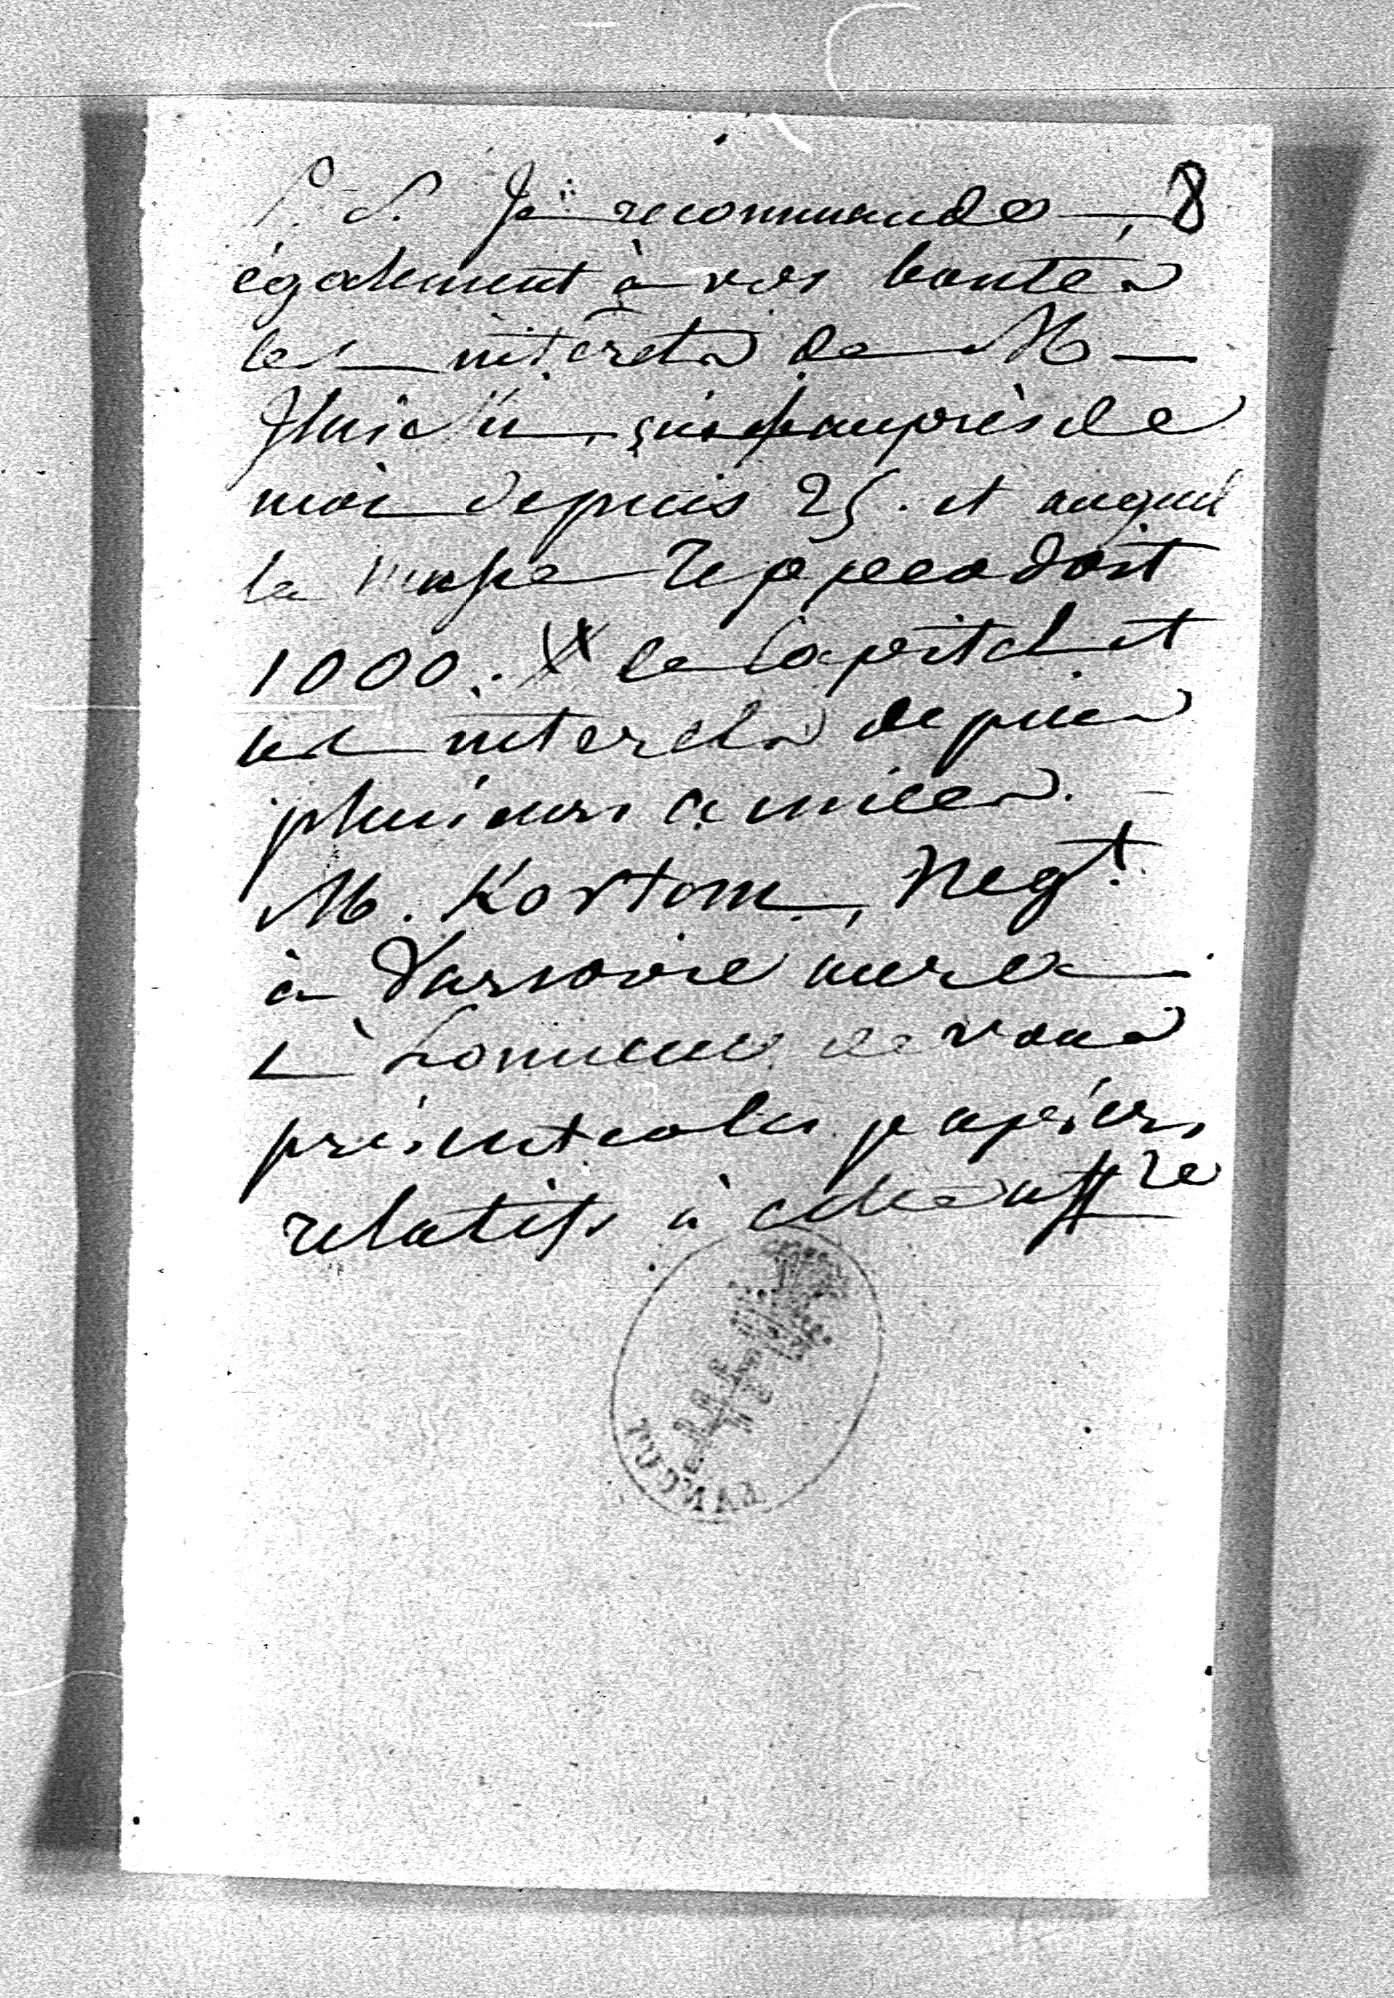 P. S. Je recommande 8
également à vos bontés
les intérêts de M
qui est auprès de
moi depuis 25. et auquel
la masse Tepper doit
1000. # le Capital et
les interets depuis
plusieurs années.
M. Kortom, Negt.
à Varsovie aura
l'honneur de vous
présenter les papiers
relatifs à cette affre